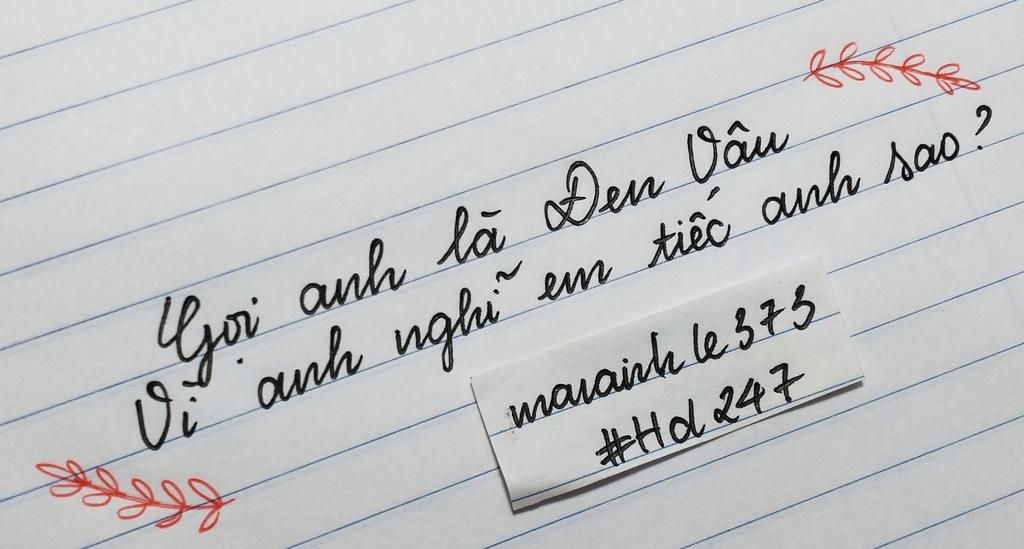 Gọi anh là Đen Vâu
Vì anh nghĩ em tiếc anh sao?
maianhle373
#Hd247